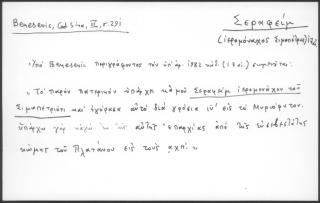 Benesevic, Cod Sina, III, σ. 291
Σεραφείμ
(ἱερομόναχος Σιμοπετρίτης)
Ὑπὸ Benesevic περιγράφοντος τὸν ὑπ' ἀρ. 1982 κώδ. (18 αἰ.) σημειοῦται:
"Τὸ παρὸν πατερικὸν ὑπάρχη κἀμοῦ Σεραφεὶμ ἱερομονάχου τοῦ
Σιμωπετριότι καὶ ἠγόρασα αὐτὸ διὰ γρόσια εἰς τὸ Μυριόφυτον.
ὑπάρχω γὰρ κἀγὼ ἐκ τῆς αὐτῆς ἐπαρχίας ἀπὸ τῆς εὐσεβεστάτης
κώμης τοῦ Πλατάνου εἰς τοὺς αχπ".